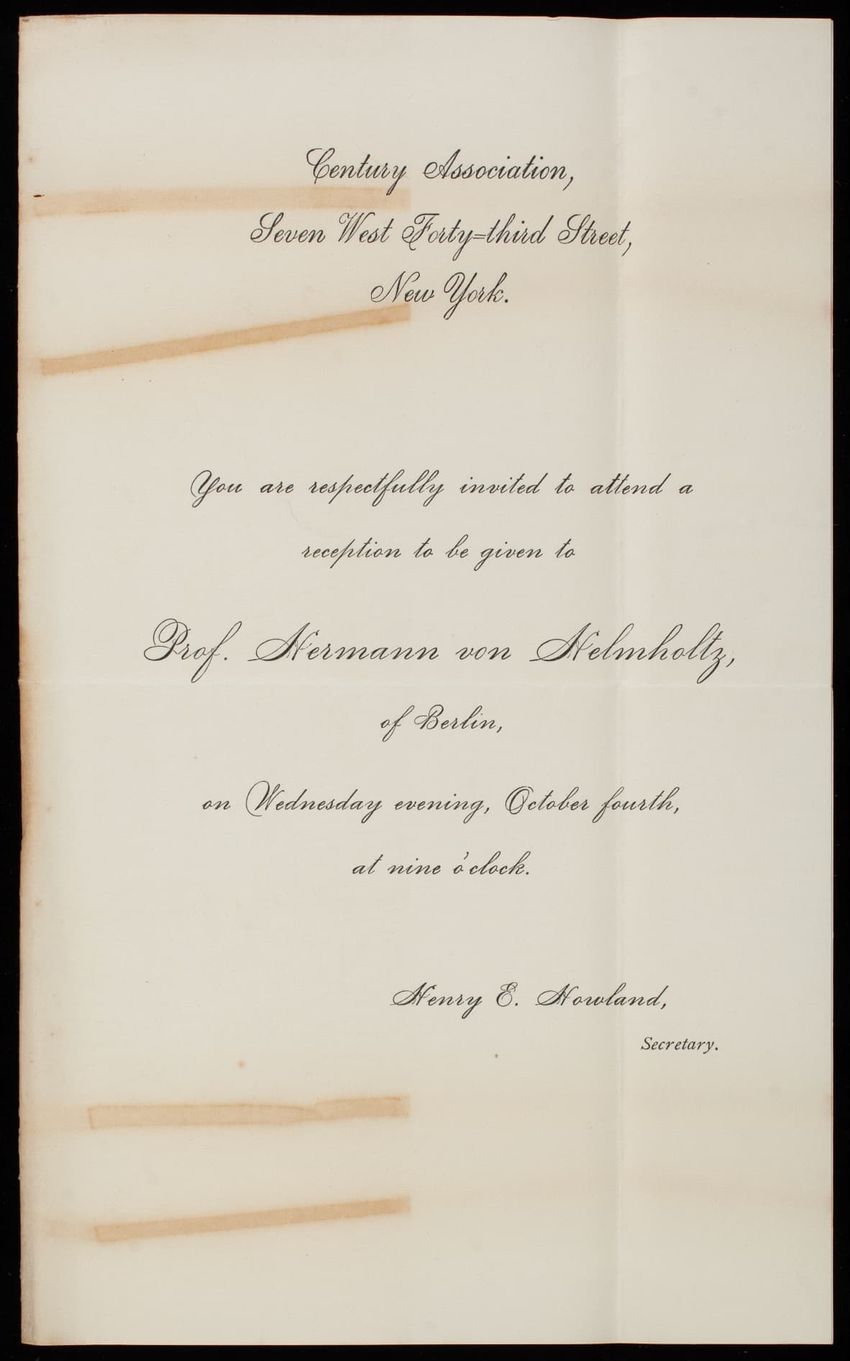 Century Association,
Seven West Forty=third Street,
New York.
You are respectfully invited to attend a
reception to be given to
Prof. Hermann von Helmholtz,
of Berlin,
on Wednesday evening, October fourth,
at nine o'clock.
Henry E. Howland,
Secretary.